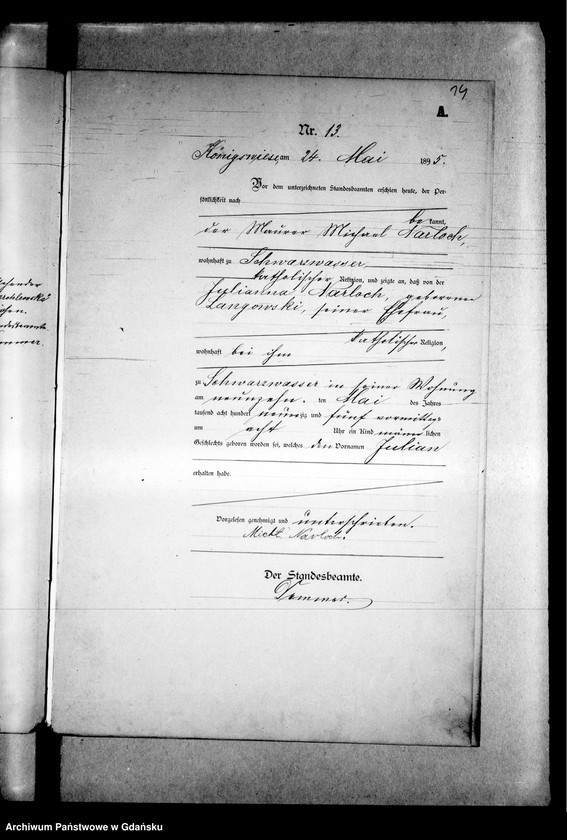 79
A.
Nr. 13.
Königswiese, am 24. Mai 1895.
Vor dem unterzeichneten Standesbeamten erschien heute, der Per-
sönlichkeit nach
bekannt,
der Maurer Michael Narloch,
wohnhaft zu Schwarzwasser
katholischer Religion, und zeigte an, daß von der
Julianna Narloch, geborenen
Langowski, seiner Ehefrau,
katholischer Religion,
wohnhaft bei ihm
zu Schwarzwasser in seiner Wohnung
am neunzehn. ten Mai des Jahres
tausend acht hundert neunzig und fünf vormittags
um acht Uhr ein Kind männlichen
Geschlechts geboren worden sei, welches den Vornamen Julian
erhalten habe.
Vorgelesen genehmigt und unterschrieben.
Michl Narloch.
Der Standesbeamte.
Dommer.
Archiwum Państwowe w Gdańsku